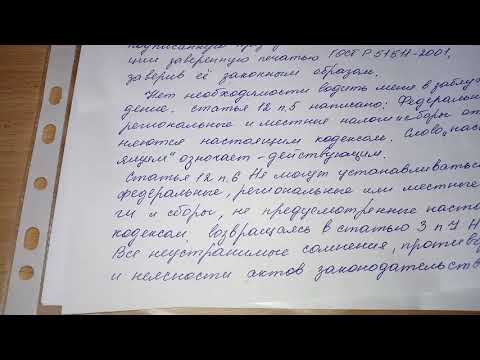 подписанную през
ции заверенную печатью ГОСТ Р 51511-2001,
заверив её законным образом.
Нет необходимости водить меня в заблуж
дение. статья 12 п.5 написано: Федеральн
региональные и местные налоги и сборы от
няются настоящим кодексом. Слово „нас
ящем" означает - действующим.
Статья 12 п.6 Не могут устанавливаться
федеральные, региональные или местные
ги и сборы, не предусмотренные наст
кодексом возвращаясь в статью 3 п-7 Н
Все неустранимые сомнения, противо
и неясности актов законодательств